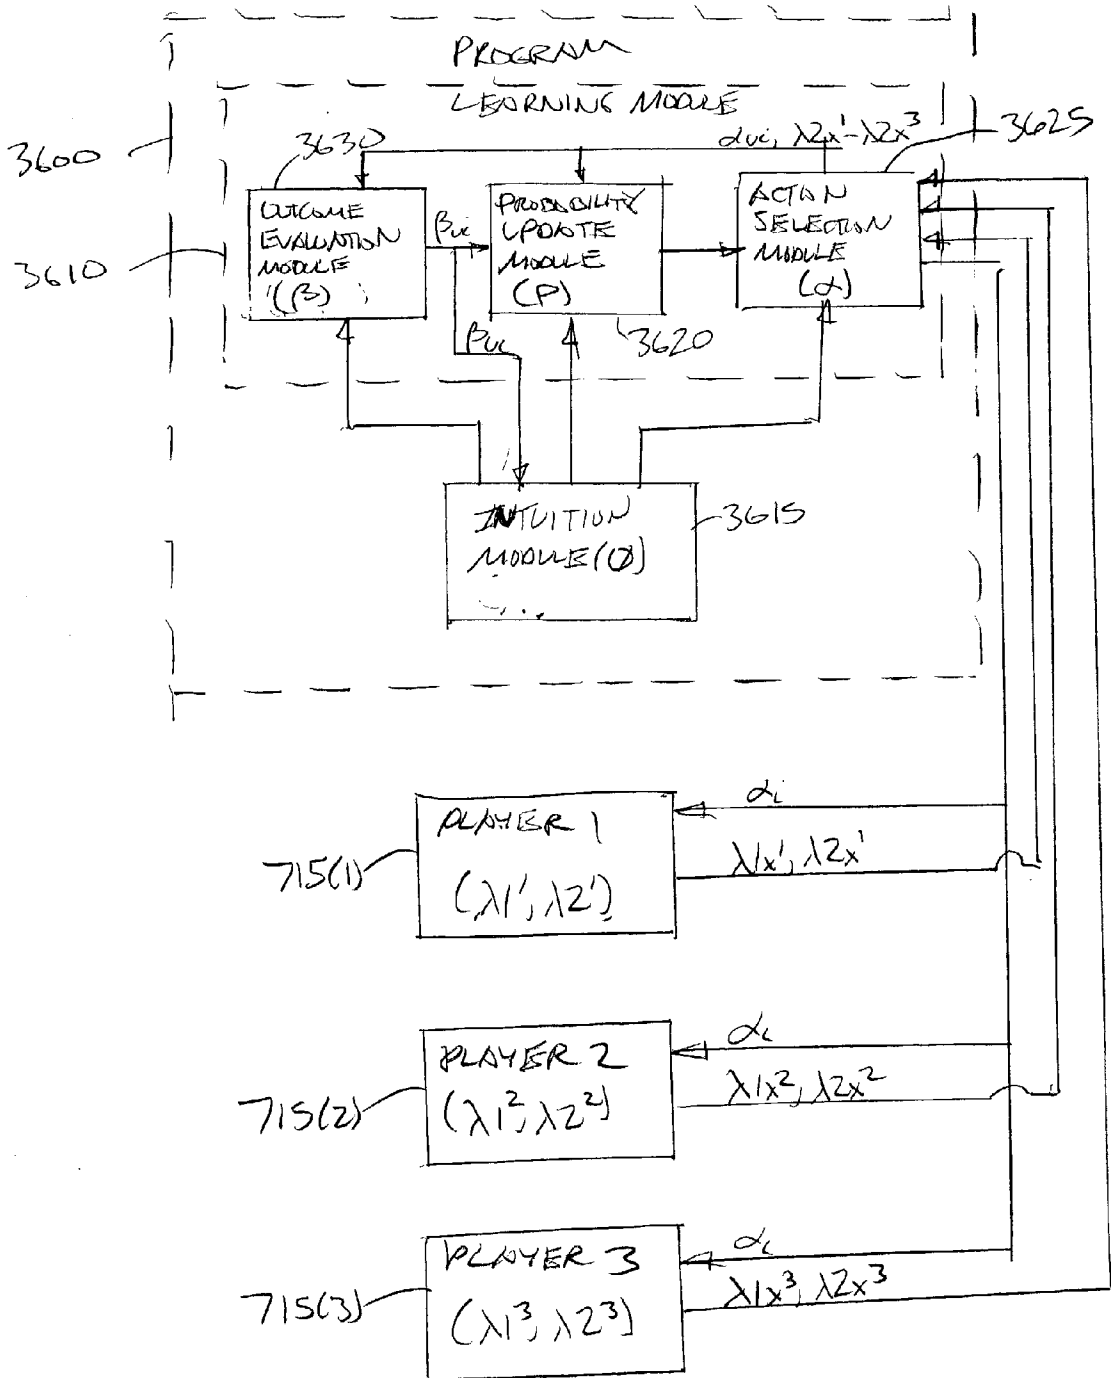 PROGRAM
LEARNING MODULE
3600
3630
αuc, λ2x¹-λ2x³
3625
OUTCOME
EVALUATION
MODULE
(β)
βuc
PROBABILITY
UPDATE
MODULE
(P)
ACTION
SELECTION
MODULE
(α)
3610
βuc
3620
INTUITION
MODULE (Ø)
3615
PLAYER 1
(λ1¹, λ2¹)
αi
λ1x¹, λ2x¹
715(1)
PLAYER 2
(λ1², λ2²)
αi
λ1x², λ2x²
715(2)
PLAYER 3
(λ1³, λ2³)
αi
λ1x³, λ2x³
715(3)